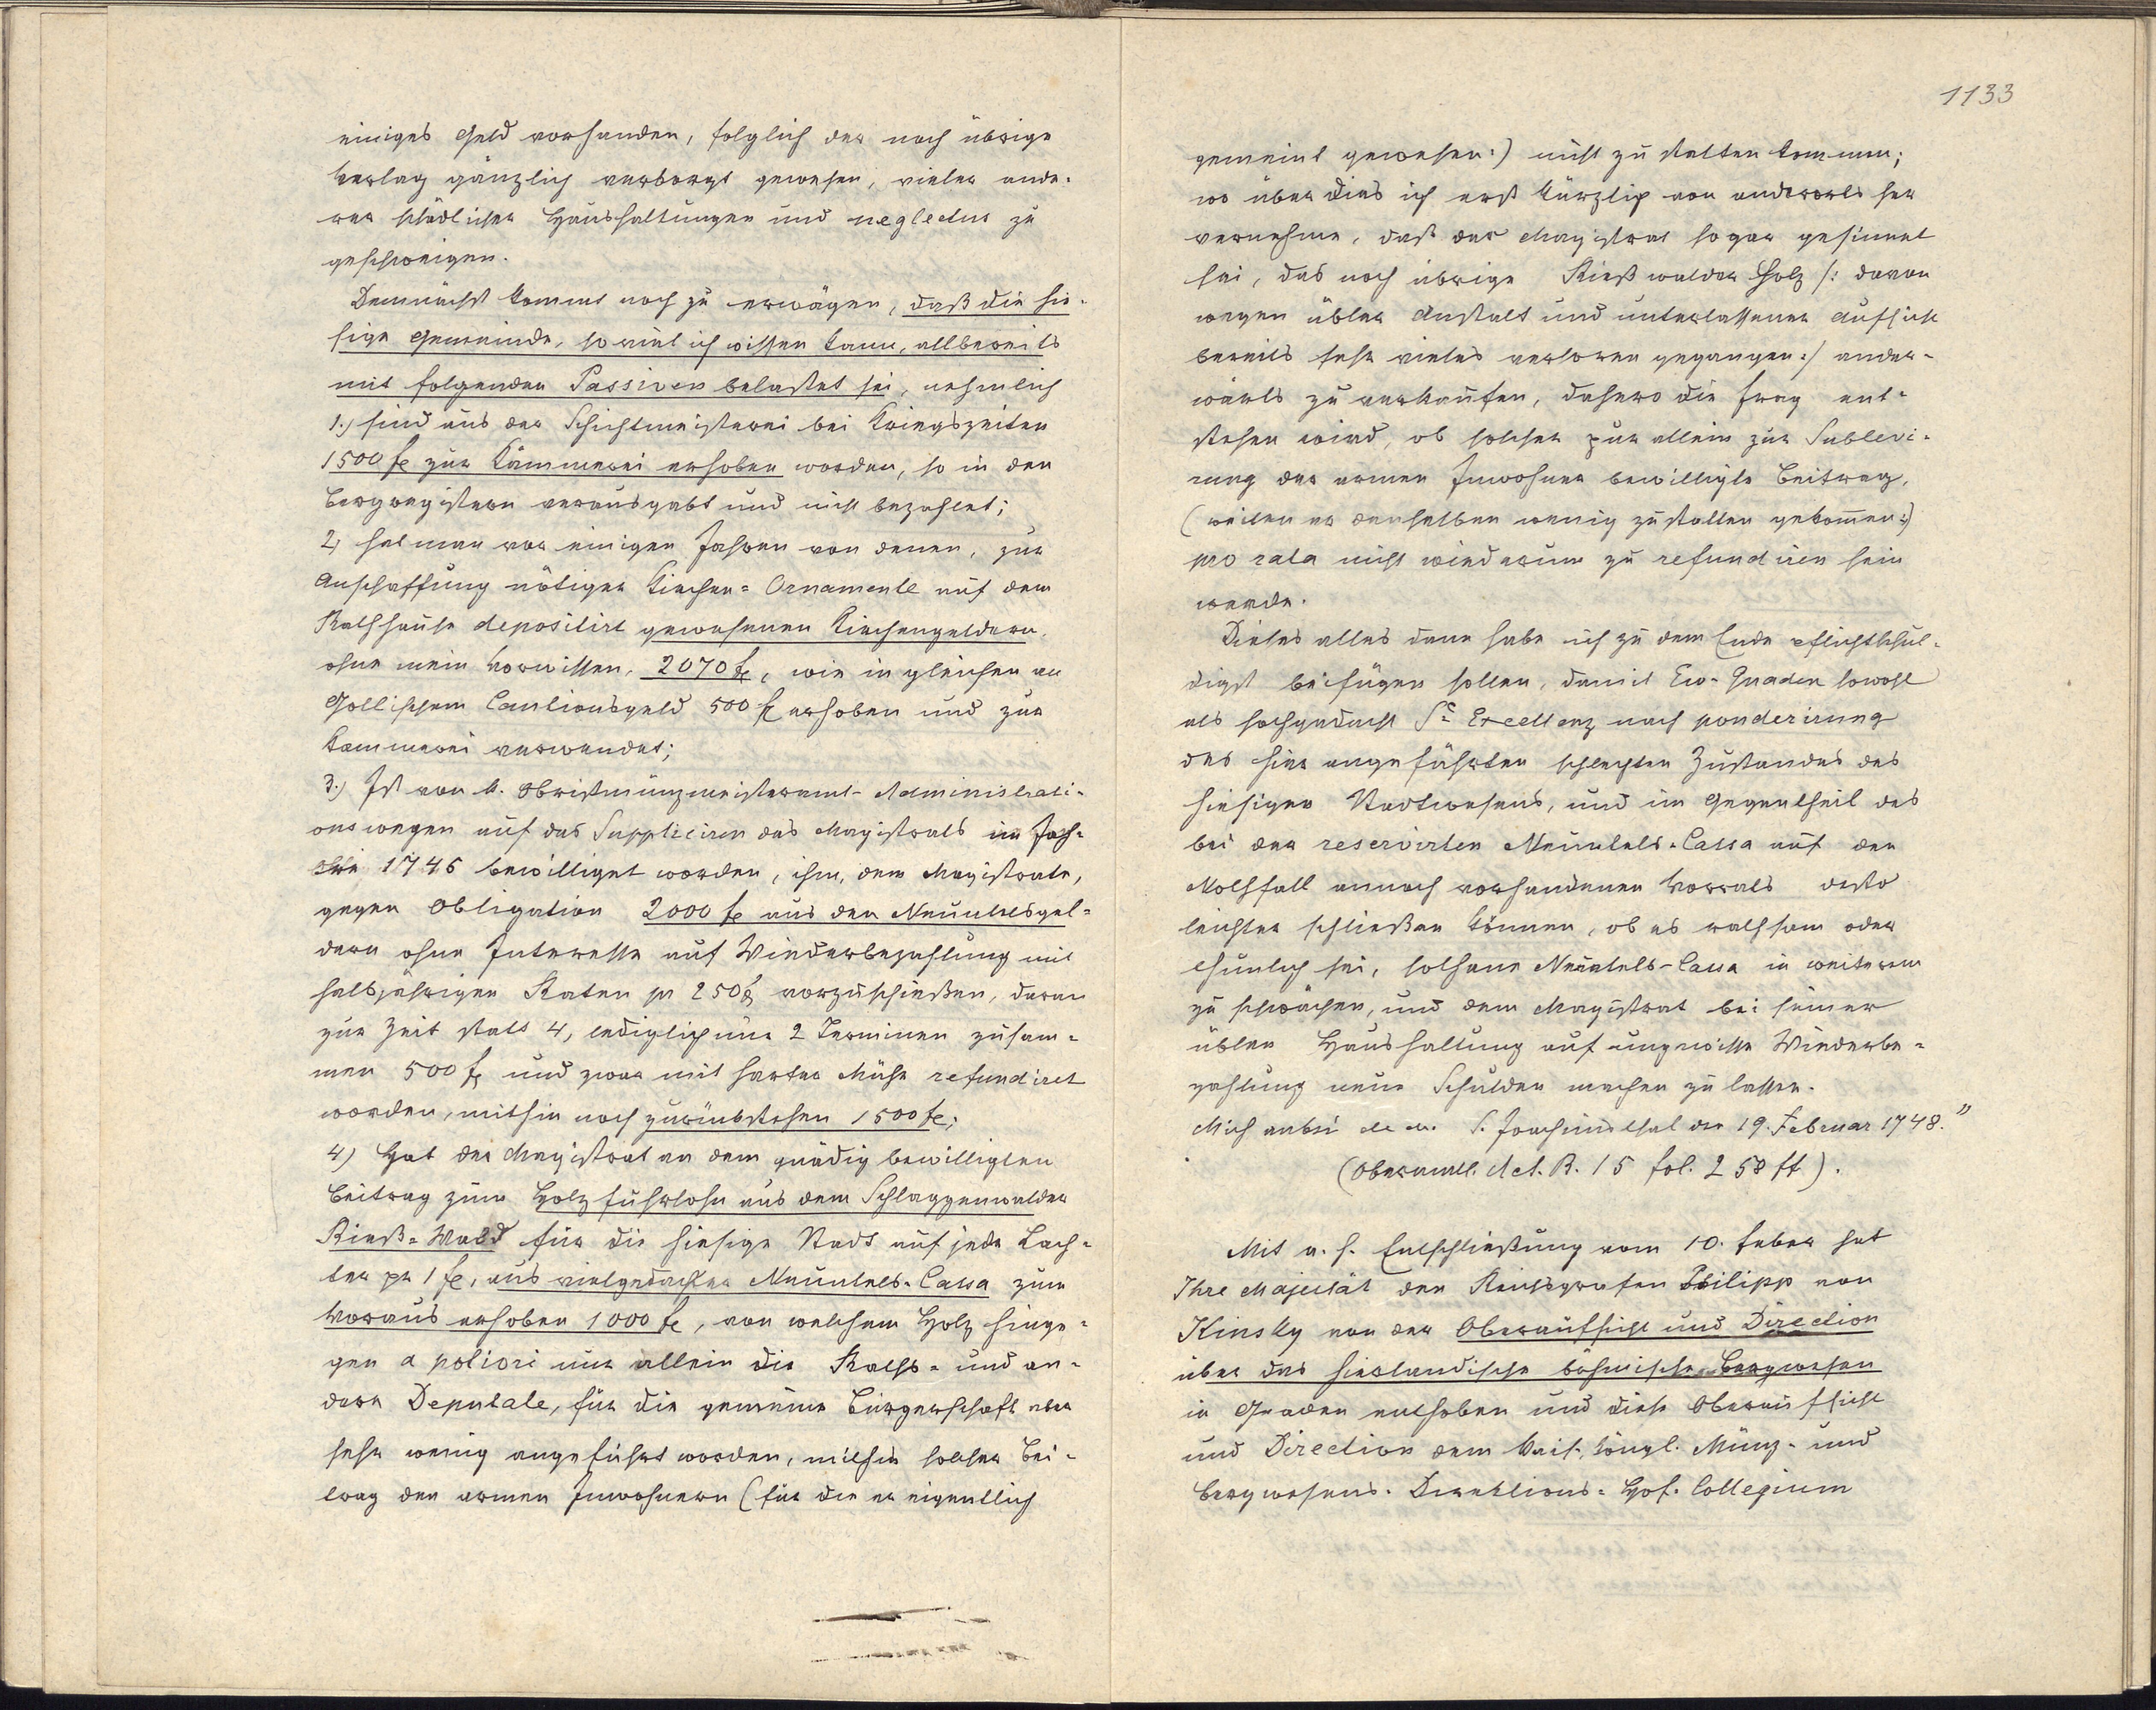 einiges Geld vorhanden, folglich der noch übrige
Verlag gänzlich verborgt gewesen, vieler ande-
rer schädlicher Haushaltungen und neglectus zu
geschweigen.
Demnächst kommt noch zu erwägen, daß die hie-
sige Gemeinde, so viel ich wissen kann, allbereits
mit folgenden Passiven belastet sei, nehmlich
1.) sind aus der Schichtmeisterei bei Kriegszeiten
1500 fl zur Kämmerei erhoben worden, so in den
Bergregistern verausgabt und nicht bezahlet;
2) hat man vor einigen Jahren von denen, zur
Anschaffung nötiger Kirchen-Ornamente auf dem
Rathhause depositirt gewesenen Kirchengeldern,
ohne mein Vorwissen, 2070 fl, wie in gleichen an
Gollischem Cautionsgeld 500 fl erhoben und zur
Kammerei verwendet;
3.) Ist von k. Obristmünzmeisteramt-Administrati-
ons wegen auf das Suppliciren des Magistrats im Jah-
re 1746 bewilliget worden, ihm, dem Magistrate,
gegen Obligation 2000 fl aus den Neuntelsgel-
dern ohne Interesse auf Wiederbezahlung mit
halbjährigen Raten pr 250 fl vorzuschießen, daran
zur Zeit statt 4, lediglich nur 2 Terminen zusam-
men 500 fl und zwar mit harter Mühe refundiret
worden, mithin noch zurückstehen 1500 fl;
4) Hat der Magistrat an dem gnädig bewilligten
Beitrag zum Holzfuhrlohn aus dem Schlaggenwalder
Rieß-Wald für die hiesige Stadt auf jede Lach-
ter pr 1 fl, aus vielgedachter Neuntels-Cassa zum
Voraus erhoben 1000 fl, von welchem Holz hinge-
gen a potiori nur allein die Raths- und an-
dere Deputate, für die gemeine Bürgerschaft aber
sehr wenig angeführt worden, mithin solcher Bei-
trag den armen Inwohnern (für die er eigentlich
1133
gemeint gewesen:) nicht zu statten kommen;
wo über dies ich erst kürzlich von anderorts her
vernehme, daß der Magistrat sogar gesinnet
sei, das noch übrige Rießwalder Holz /: davon
wegen übler Anstalt und unterlassener Aufsicht
bereits sehr vieles verloren gegangen :/ ander-
wärts zu verkaufen, dahero die Frag ent-
stehen wird, ob solcher pur allein zur Sublevi-
rung der armen Inwohner bewilligte Beitrag,
(weilen er denselben wenig zustatten gekommen:)
pro rata nicht wiederum zu refundiren sein
werde.
Dieses alles dann habe ich zu dem Ende pflichtschul-
digst beifügen sollen, damit Ew. Gnaden sowohl
als hochgedacht Se Excellenz nach ponderirung
des hier angeführten schlechten Zustandes des
hiesigen Stadtwesens, und im Gegentheil des
bei der reservirten Neuntels-Cassa auf den
Nothfall annoch vorhandenen Vorrats desto
leichter schließen können, ob es rathsam oder
thunlich sei, solhane Neuntels-Cassa in weiterem
zu schwächen, und dem Magistrat bei seiner
üblen Haushaltung auf ungewisse Wiederbe-
zahlung neue Schulden machen zu lassen.
Mich anbei etc. etc. S. Joachimsthal den 19. Februar 1748."
(Oberamtl. Act. B. 15 fol. 258 ff).
Mit a. h. Entschließung vom 10. Feber hat
Ihre Majestät den Reichsgrafen Philipp von
Kinsky von der Oberaufsicht und Direction
über das hierlandische böhmische Bergwesen
in Gnaden enthoben und diese Oberaufsicht
und Direction dem kais. köngl. Münz- und
Bergwesens-Direktions-Hof-Collegium